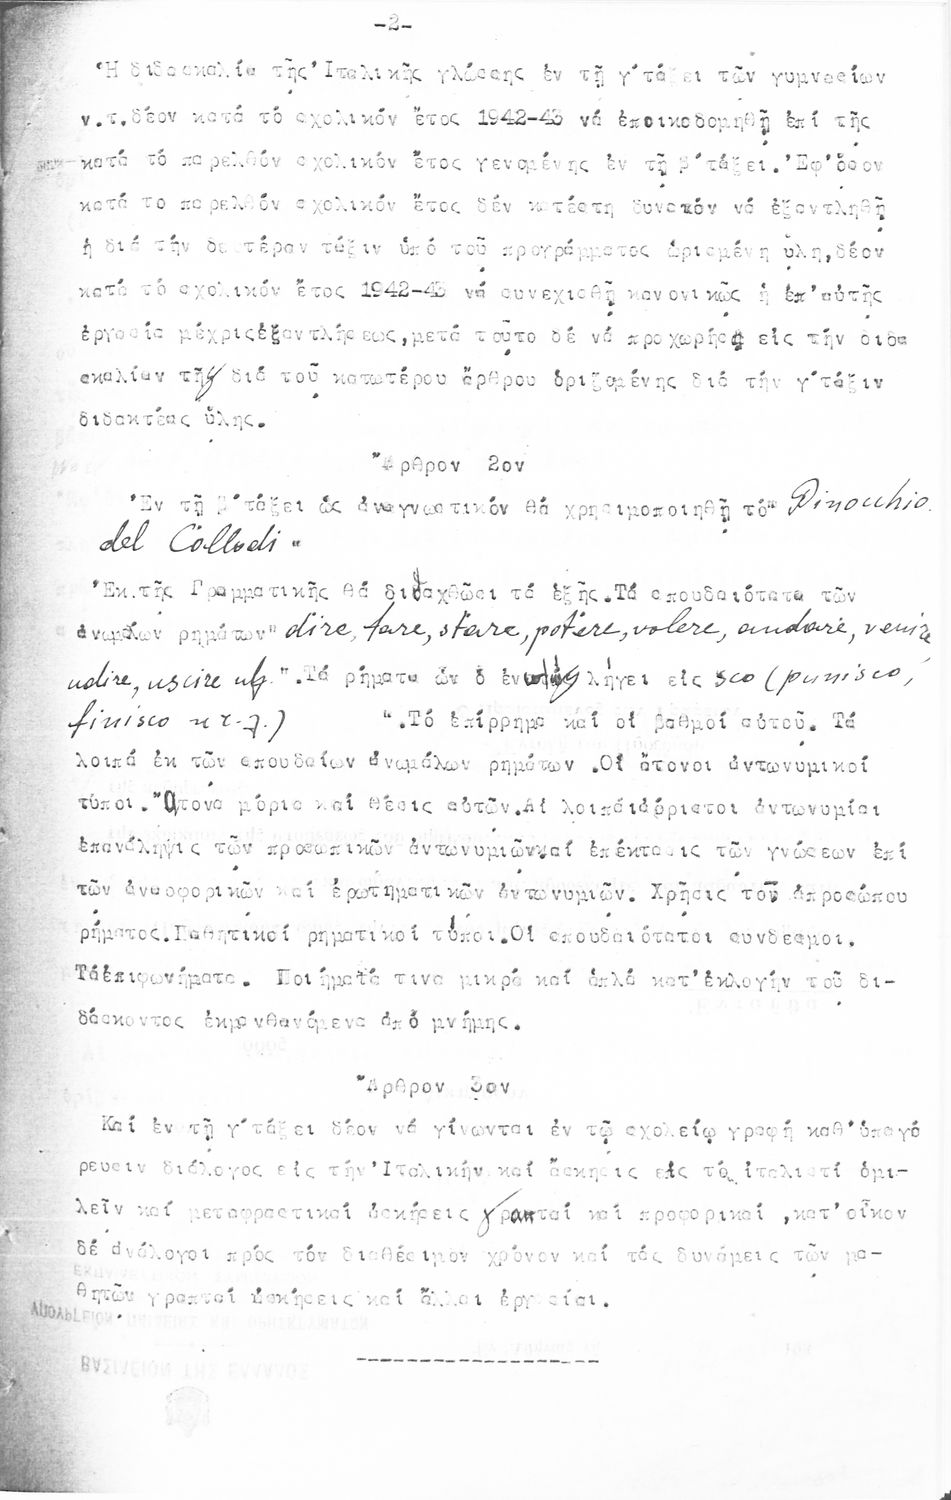 -2-
Ἡ διδασκαλία τῆς Ἰταλικῆς γλώσσης ἐν τῇ γ΄τάξει τῶν γυμνασίων
ν.τ.δέον κατά τό σχολικόν ἔτος 1942-43 νά ἐποικοδομηθῇ ἐπί τῆς
κατά τό παρελθόν σχολικόν ἔτος γενομένης ἐν τῇ β΄τάξει.Ἐφ'ὅσον
κατά το παρελθόν σχολικόν ἔτος δέν κατέστη δυνατόν νά ἐξαντληθῇ
ἡ διά τήν δευτέραν τάξιν ὑπό τοῦ προγράμματος ὡρισμένη ὕλη,δέον
κατά τό σχολικόν ἔτος 1942-43 νά συνεχισθῇ κανονικῶς ἡ ἐπ'αὐτῆς
ἐργασία μέχριςἐξαντλήσεως,μετά τοῦτο δέ νά προχωρήσῃ εἰς τήν διδα
σκαλίαν τῆς διά τοῦ κατωτέρου ἄρθρου ὁριζομένης διά τήν γ΄τάξιν
διδακτέας ὕλης.
Ἄρθρον 2ον
Ἐν τῇ β΄τάξει ὡς ἀναγνωστικόν θά χρησιμοποιηθῇ τό" Pinocchio
del Collodi "
Ἐκ.τῆς Γραμματικῆς θά διδαχθῶσι τά ἑξῆς.Τά σπουδαιότατα τῶν
ἀνωμάλων ρημάτων" dire, fare, stare, potere, volere, andare, venire
udire, uscire κλ.".Τά ρήματα ὧν ὁ ἐνεστώς λήγει εἰς sco (punisco,
finisco κ τ.λ.) ".Τό ἐπίρρημα καί οἱ βαθμοί αὐτοῦ. Τά
λοιπά ἐκ τῶν σπουδαίων ἀνωμάλων ρημάτων .Οἱ ἄτονοι ἀντωνυμικοί
τύποι.Ἄτονα μόρια καί θέσις αὐτῶν.Αἱ λοιπάί ἀόριστοι ἀντωνυμίαι
ἐπανάληψις τῶν προσωπικῶν ἀντωνυμιῶνκαί ἐπέκτασις τῶν γνώσεων ἐπί
τῶν ἀναφορικῶν καί ἐρωτηματικῶν ἀντωνυμιῶν. Χρῆσις τοῦ ἀπροσώπου
ρήματος.Παθητικοί ρηματικοί τύποι.Οἱ σπουδαιότατοι συνδεσμοι.
Τάἐπιφωνήματα. Ποιήματά τινα μικρά καί ἁπλά κατ'ἐκλογήν τοῦ δι-
δάσκοντος ἐκμανθανόμενα ἀπό μνήμης.
Ἄρθρον 3ον
Καί ἐν τῇ γ΄τάξει δέον νά γίνωνται ἐν τῷ σχολείῳ γραφή καθ'ὑπαγό
ρευσιν διάλογος εἰς τήν Ἰταλικήν καί ἄσκησις εἰς τό ἰταλιστί ὁμι-
λεῖν καί μεταφραστικαί ἀσκήσεις γραπταί καί προφορικαί ,κατ'οἶκον
δέ ἀνάλογοι πρός τόν διαθέσιμον χρόνον καί τάς δυνάμεις τῶν μα-
θητῶν γραπταί ἀσκήσεις καί ἄλλαι ἐργασίαι.
-------------------